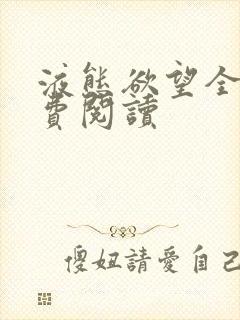 液態欲望全
費閱讀
傻妞請愛自己